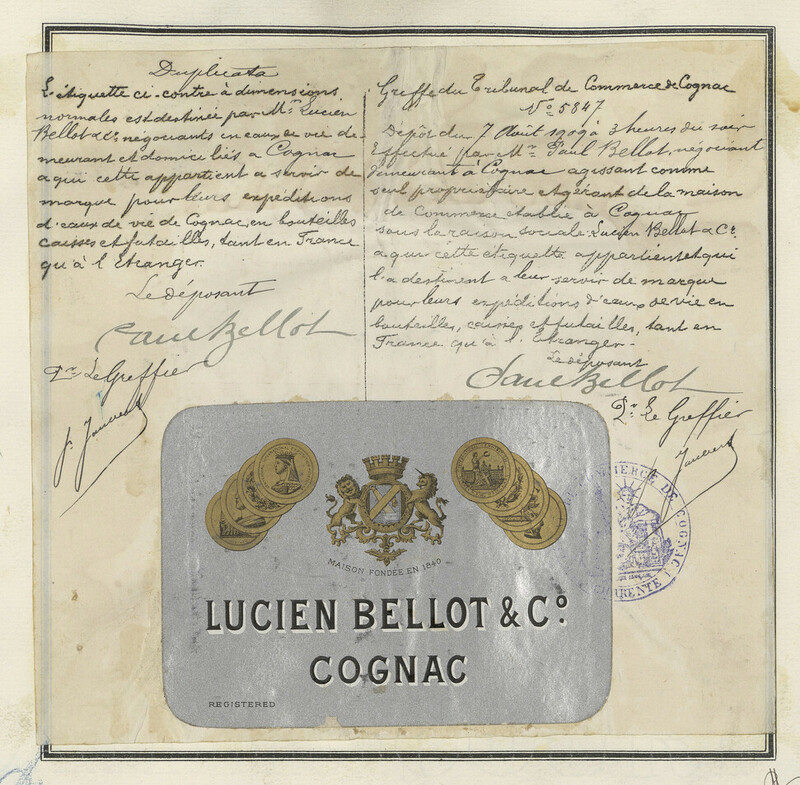 Duplicata
L'étiquette ci-contre à dimensions
normales est destinée par Mr Lucien
Bellot & Co, négociants en eaux de vie de
meurant et domiciliés à Cognac
a qui cette appartient a servir de
marque pour leurs expéditions
d'eaux de vie de Cognac, en bouteilles
caisses et futailles, tant en France
qu'à l'Etranger.
Le déposant
Paul Bellot
Pr Le Greffier
Greffe du Tribunal de Commerce de Cognac
No 5847
Dépôt du 7 Août 1909 à 3 heures du soir
Effectué par Mr Paul Bellot, négociant
demeurant à Cognac agissant comme
seul propriétaire et gérant de la maison
de Commerce établie à Cognac
sous la raison sociale: Lucien Bellot & Co
a qui cette étiquette appartient et qui
l'a destinent a leur servir de marque
pour leurs expéditions d'eaux de vie en
bouteilles, caisses et futailles, tant en
France qu'à l'Etranger.
Le déposant
Paul Bellot
Pr Le Greffier
MAISON FONDÉE EN 1840
LUCIEN BELLOT & Co
COGNAC
REGISTERED
COMMERCE DE COGNAC
CHARENTE